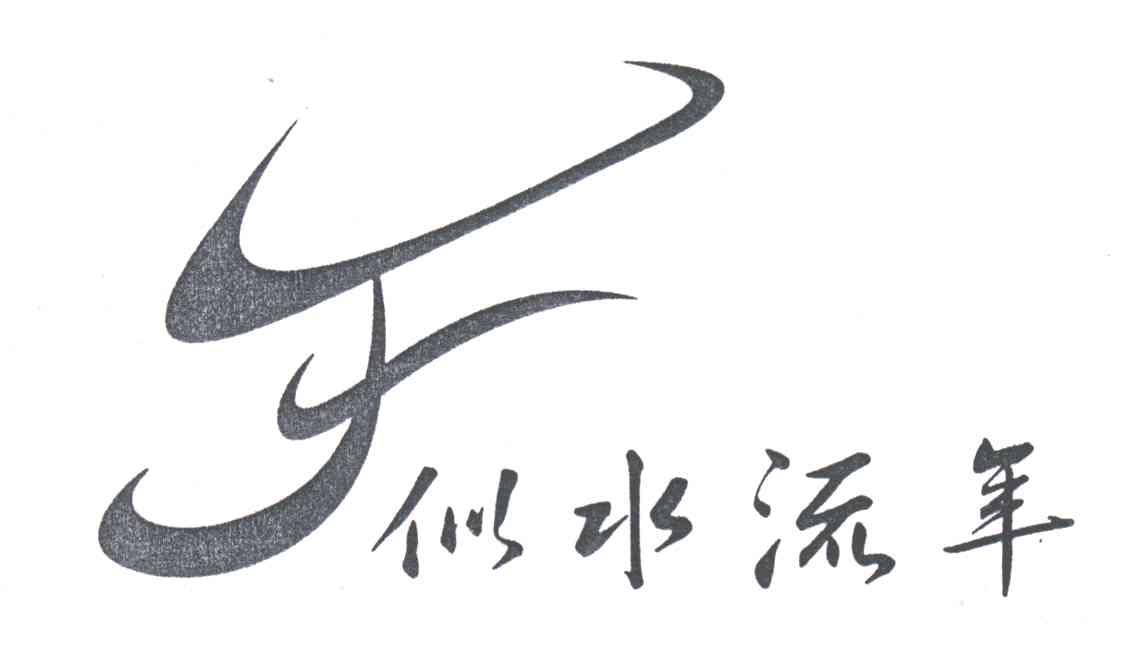 似水流年